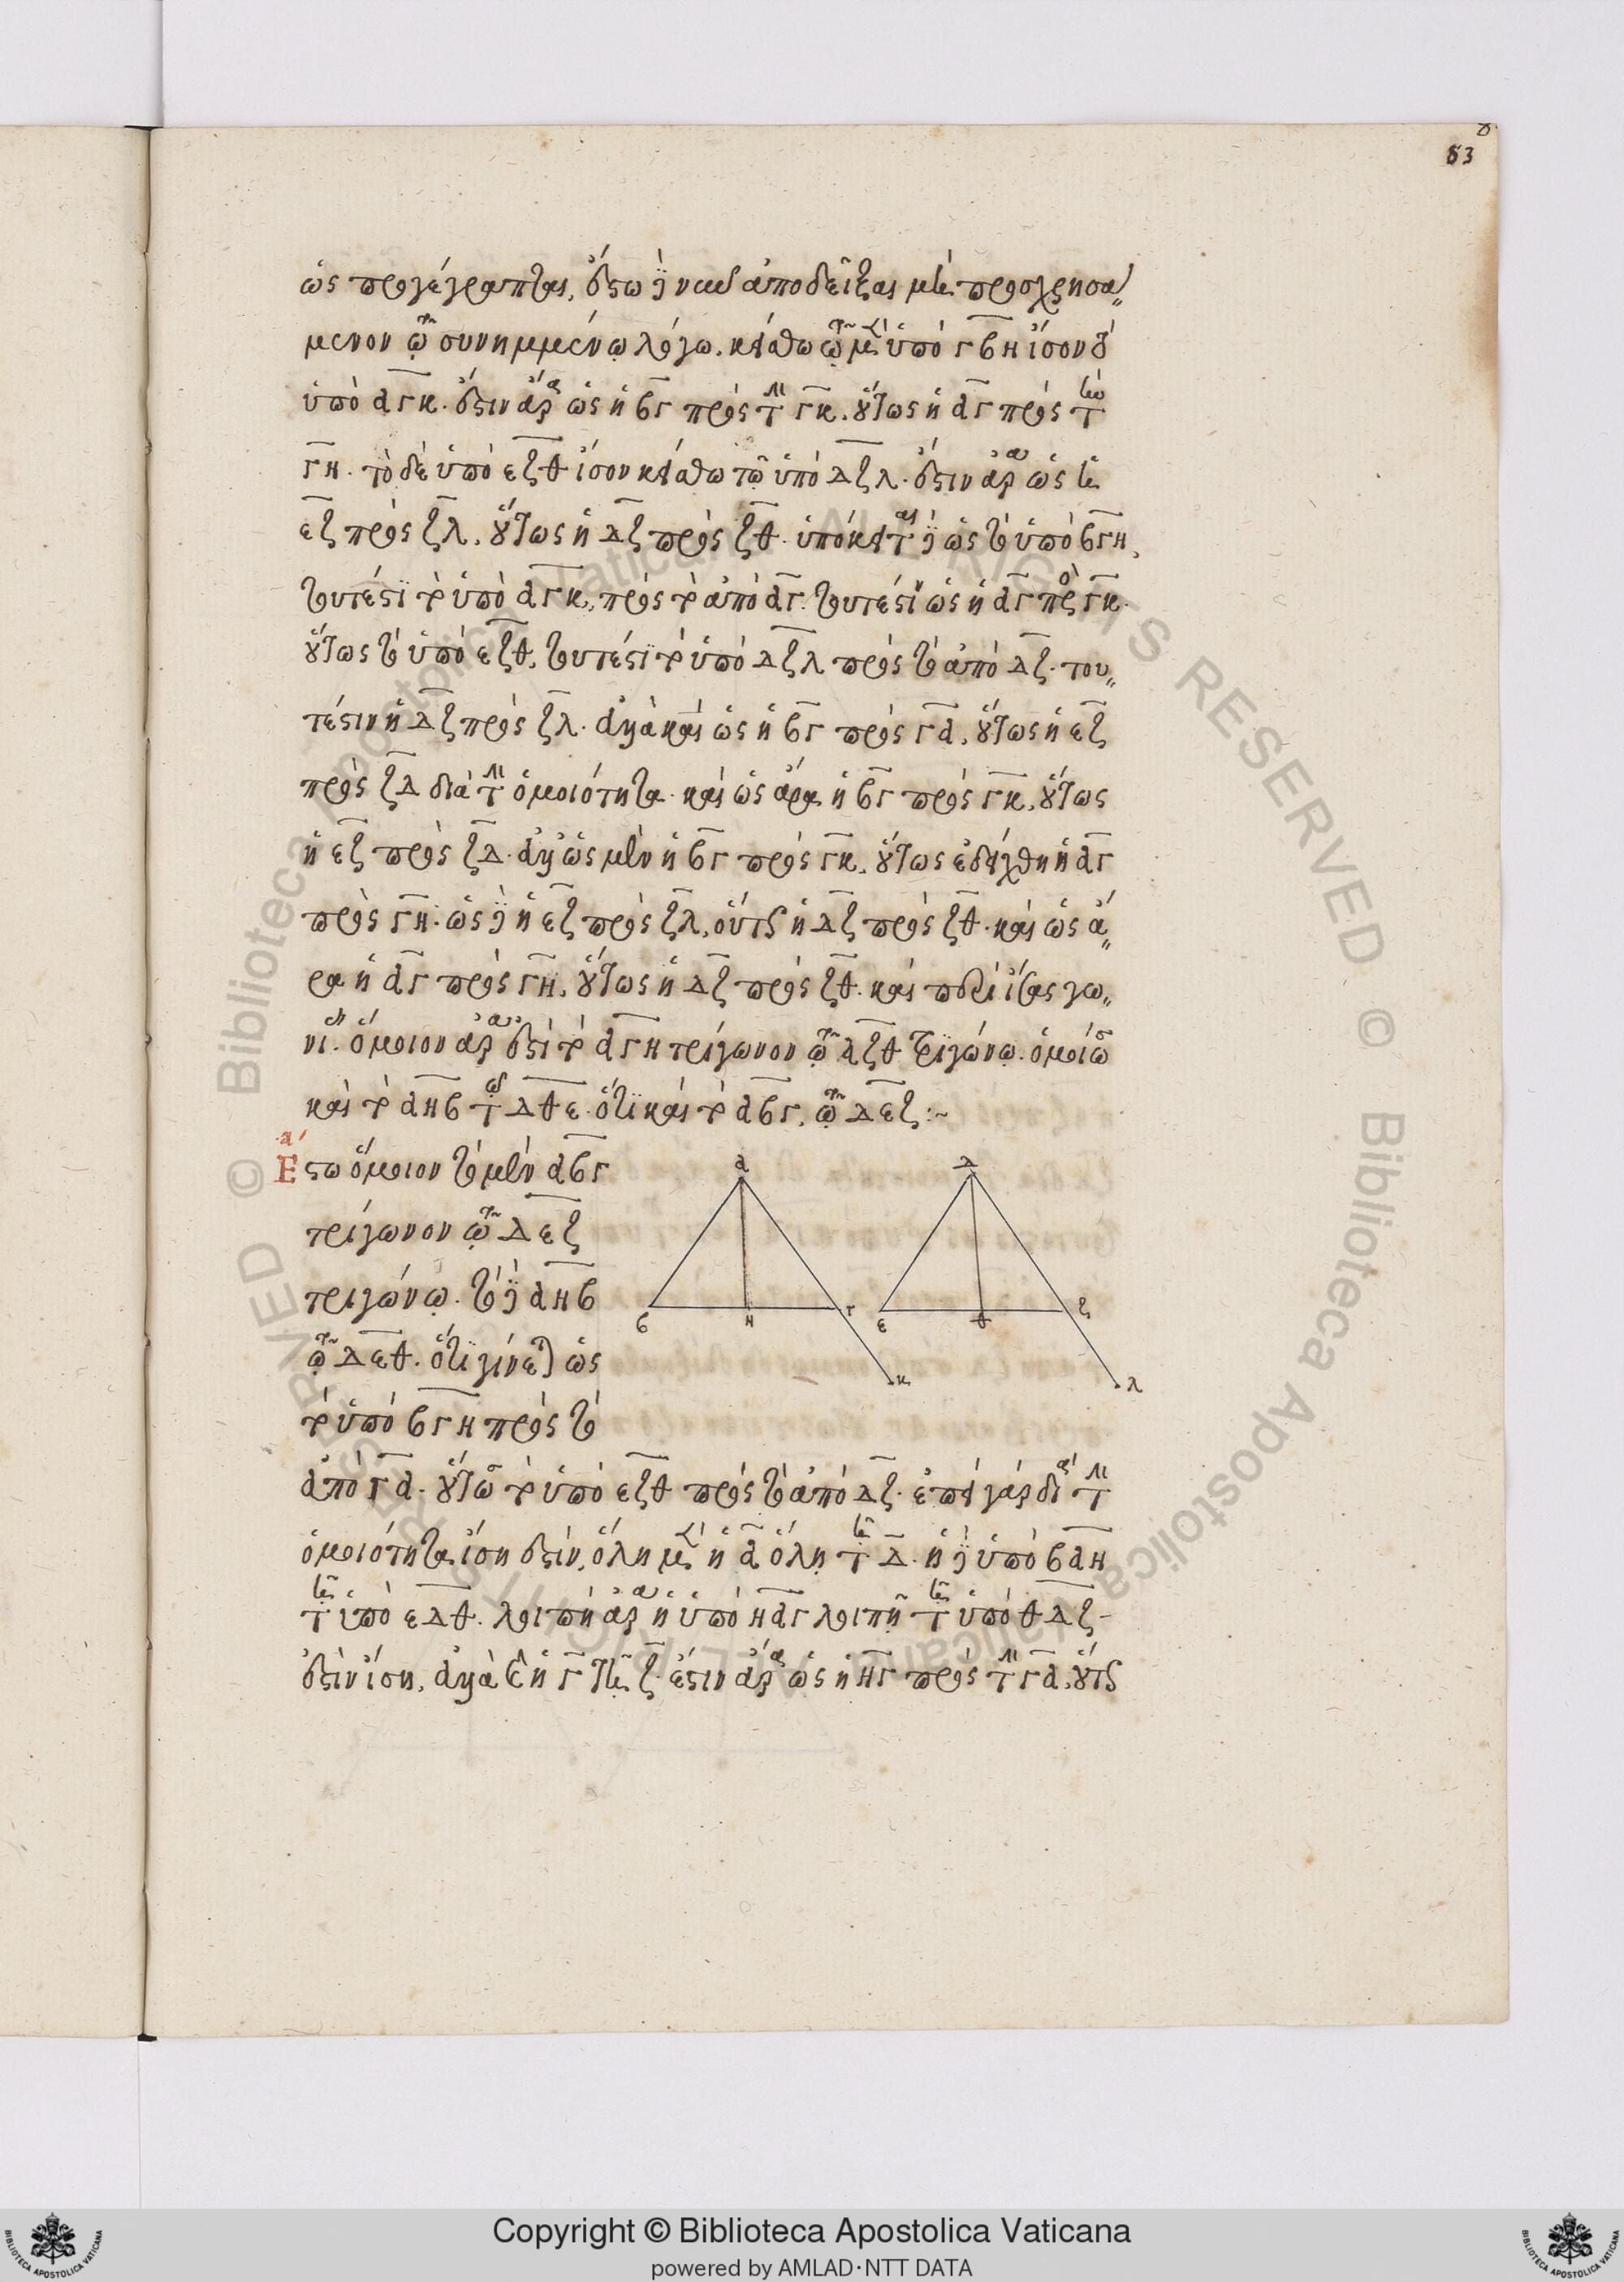 53
ὡς προγέγραπται, ἔστω δὲ νῦν ἀποδεῖξαι μὴ προσχρησά
μενον τῷ συνημμένῳ λόγῳ. κείσθω τῷ μὲν ὑπὸ ΓΒΗ ἴσον τὸ
ὑπὸ ΑΓΚ. ἔστιν ἄρα ὡς ἡ ΒΓ πρὸς τὴν ΓΚ, οὕτως ἡ ΑΓ πρὸς τὴν
ΓΗ. τὸ δὲ ὑπὸ ΕΖΘ ἴσον κείσθω τῷ ὑπὸ ΔΖΛ. ἔστιν ἄρα ὡς ἡ
ΕΖ πρὸς ΖΛ, οὕτως ἡ ΔΖ πρὸς ΖΘ. ὑπόκειται δὲ ὡς τὸ ὑπὸ ΒΓΗ,
τουτέστι τὸ ὑπὸ ΑΓΚ, πρὸς τὸ ἀπὸ ΑΓ. τουτέστιν ὡς ἡ ΑΓ πρὸς ΓΚ.
οὕτως τὸ ὑπὸ ΕΖΘ, τουτέστι τὸ ὑπὸ ΔΖΛ πρὸς τὸ ἀπὸ ΔΖ. του
τέστιν ἡ ΔΖ πρὸς ΖΛ. ἀλλὰ καὶ ὡς ἡ ΒΓ πρὸς ΓΑ, οὕτως ἡ ΕΖ
πρὸς ΖΔ διὰ τὴν ὁμοιότητα. καὶ ὡς ἄρα ἡ ΒΓ πρὸς ΓΚ, οὕτως
ἡ ΕΖ πρὸς ΖΔ. ἀλλ' ὡς μὲν ἡ ΒΓ πρὸς ΓΚ, οὕτως ἐδείχθη ἡ ΑΓ
πρὸς ΓΗ. ὡς δὲ ἡ ΕΖ πρὸς ΖΛ, οὕτως ἡ ΔΖ πρὸς ΖΘ. καὶ ὡς ἄ
ρα ἡ ΑΓ πρὸς ΓΗ, οὕτως ἡ ΔΖ πρὸς ΖΘ. καὶ περὶ ἴσας γω
νίας. ὅμοιον ἄρα ἐστὶ τὸ ΑΓΗ τρίγωνον τῷ ΔΖΘ τριγώνῳ. ὁμοίως
καὶ τὸ ΑΗΒ τῷ ΔΘΕ. ὅτι καὶ τὸ ΑΒΓ, τῷ ΔΕΖ:~
α'
Ἔστω ὅμοιον τὸ μὲν ΑΒΓ
τρίγωνον τῷ ΔΕΖ
τριγώνῳ. τὸ δὲ ΑΗΒ
τῷ ΔΕΘ. ὅτι γίνεται ὡς
τὸ ὑπὸ ΒΓΗ πρὸς τὸ
ἀπὸ ΓΑ. οὕτως τὸ ὑπὸ ΕΖΘ πρὸς τὸ ἀπὸ ΔΖ. ἐπεὶ γὰρ διὰ τὴν
ὁμοιότητα ἴση ἐστίν, ὅλη μὲν ἡ Α ὅλῃ τῇ Δ. ἡ δὲ ὑπὸ ΒΑΗ
τῇ ὑπὸ ΕΔΘ. λοιπὴ ἄρα ἡ ὑπὸ ΗΑΓ λοιπῇ τῇ ὑπὸ ΘΔΖ
ἐστὶν ἴση, ἀλλὰ καὶ ἡ Γ τῇ Ζ. ἔστιν ἄρα ὡς ἡ ΗΓ πρὸς τὴν ΓΑ, οὕτως
Α Β Η Γ Κ
Δ Ε Θ Ζ Λ
© Biblioteca Apostolica Vaticana ALL RIGHTS RESERVED
Copyright © Biblioteca Apostolica Vaticana
powered by AMLAD·NTT DATA